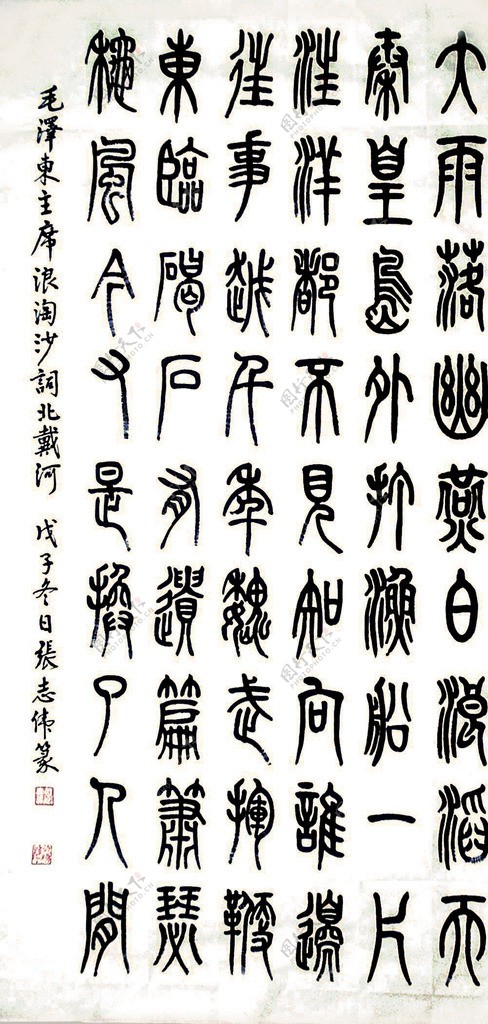 大雨落幽燕白浪滔天
秦皇島外打漁船一片
汪洋都不見知向誰邊
往事越千年魏武揮鞭
東臨碣石有遺篇蕭瑟
秋風今又是換了人間
毛澤東主席浪淘沙詞北戴河 戊子冬日張志伟篆